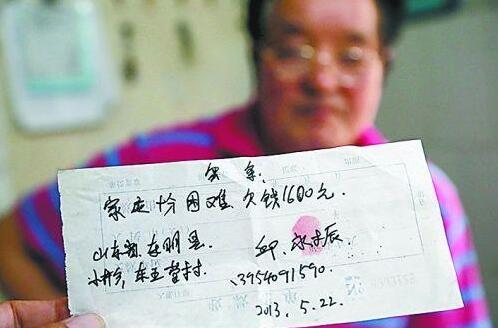 欠条:
家庭十分困难 欠钱1600元.
山东省东明县 邱永振
小井乡,东王营村. 13954091590.
2013.5.22.